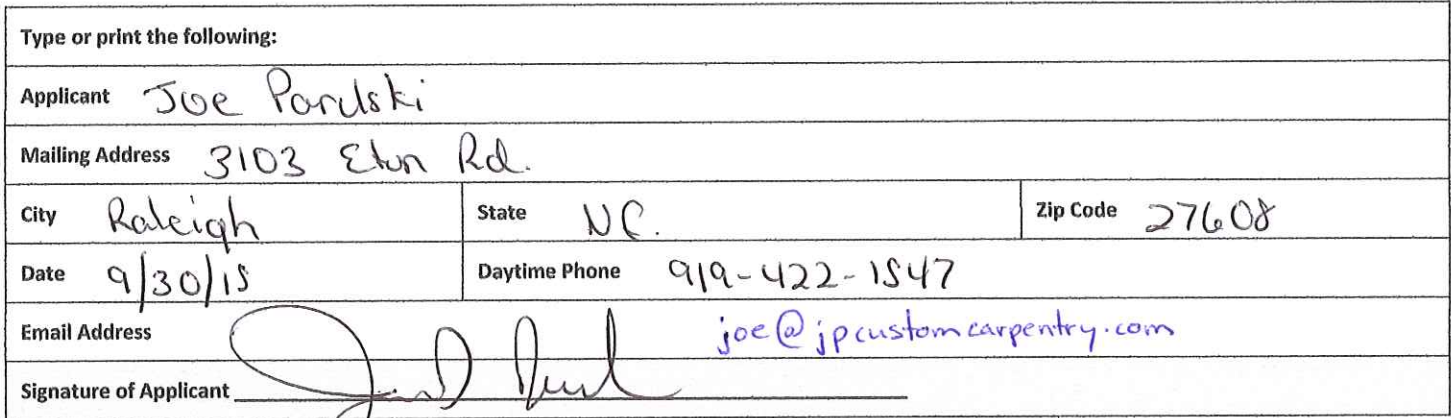 Type or print the following:
Applicant Joe Parulski
Mailing Address 3103 Eton Rd.
City Raleigh State NC. Zip Code 27608
Date 9/30/15 Daytime Phone 919-422-1547
Email Address joe@jpcustomcarpentry.com
Signature of Applicant